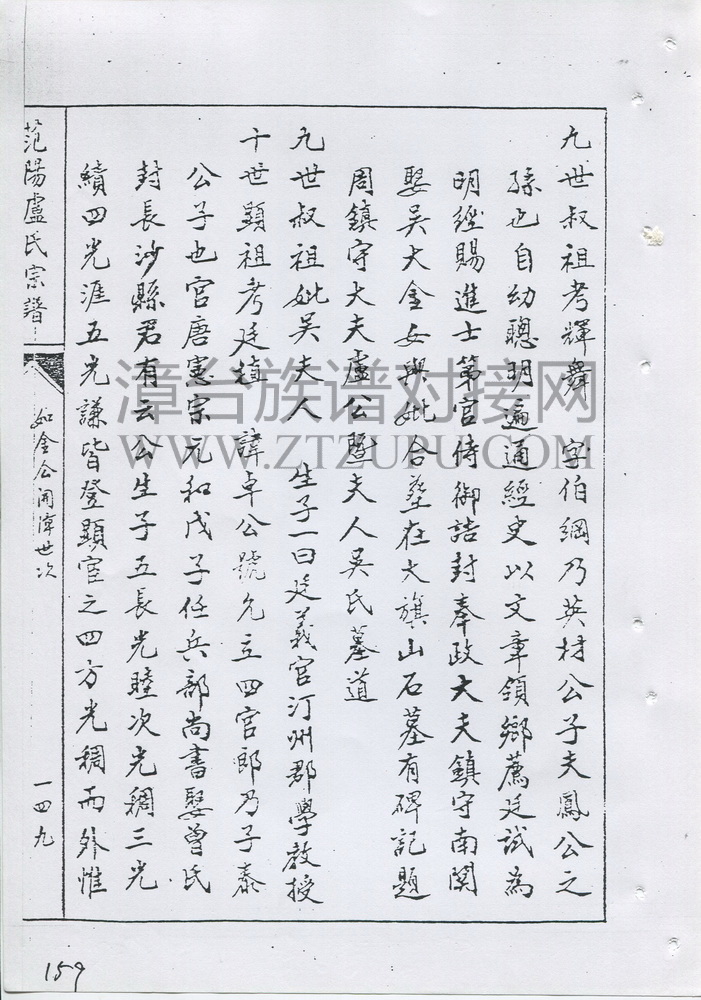 九世叔祖考輝舞　字伯綱乃英材公子夫鳳公之
孫也自幼聰明遍通經史以文章領鄉薦廷試為
明經賜進士第官侍御誥封奉政大夫鎮守南関
娶吳大金女與妣合葬在大旗山石墓有碑記題
周鎮守大夫盧公暨夫人吳氏墓道
九世叔祖妣吳夫人　生子一曰廷義官汀州郡學教授
十世顯祖考廷植　諱卓公號允立四官郎乃子泰
公子也官唐憲宗元和戊子任兵部尚書娶曾氏
封長沙縣君有云公生子五長光睦次光稠三光
績四光涯五光謙皆登顯宦之四方光稠而外惟
范陽盧氏宗譜
如金公開漳世次
一四九
159
漳台族谱对接网
WWW.ZTZUPU.COM